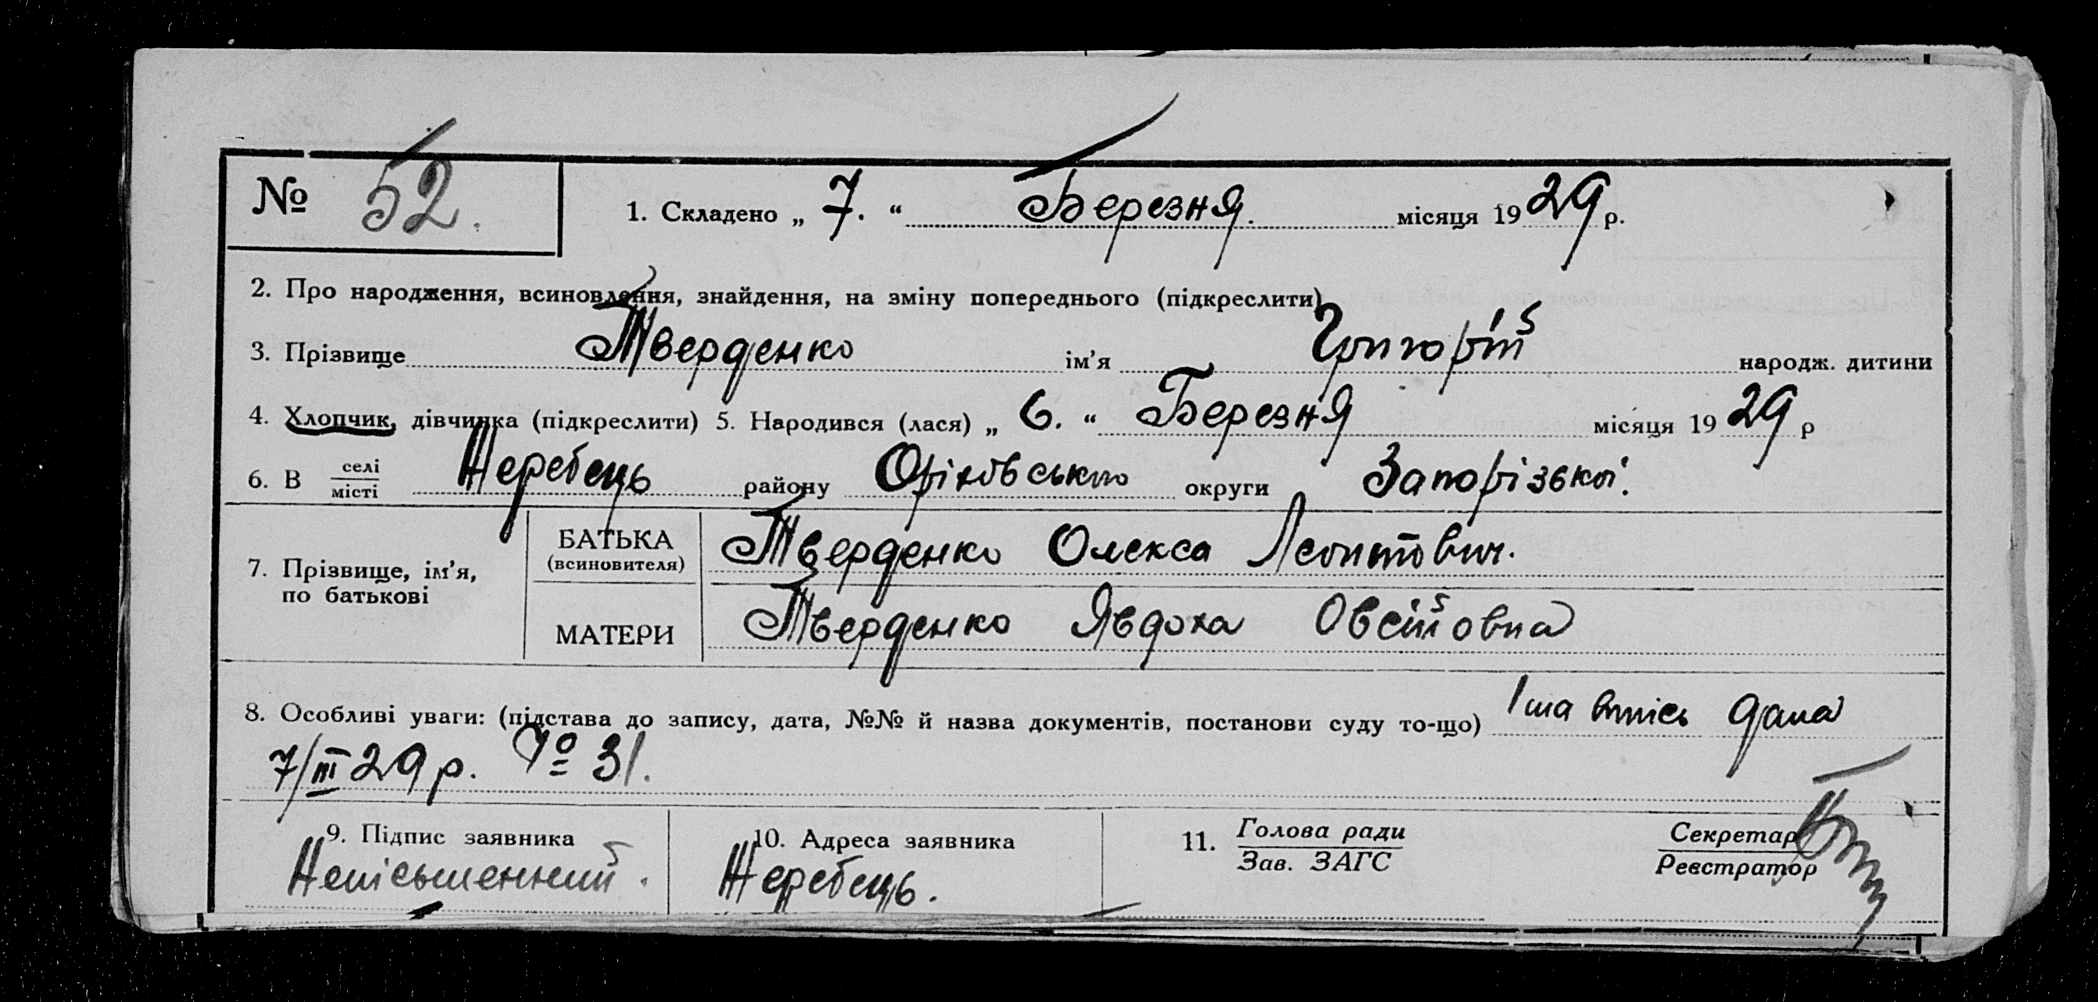 № 52. 1. Складено „ 7. “ Березня. місяця 1929 р.
2. Про народження, всиновлення, знайдення, на зміну попереднього (підкреслити)
3. Прізвище Тверденко ім’я Григорій народж. дитини
4. Хлопчик, дівчинка (підкреслити) 5. Народився (лася) „ 6. “ Березня місяця 1929 р
6. В селі
місті Жеребець району Оріхівського округи Запорізької.
7. Прізвище, ім’я,
по батькові
БАТЬКА
(всиновителя)
Тверденко Олекса Леонтович.
МАТЕРИ
Тверденко Явдоха Овсійовна
8. Особливі уваги: (підстава до запису, дата, №№ й назва документів, постанови суду то-що) І ша випісь дана
7/III 29 р. № 31.
9. Підпис заявника
Непісьменний.
10. Адреса заявника
Жеребець.
11. Голова ради
Зав. ЗАГС
Секретар
Реєстратор